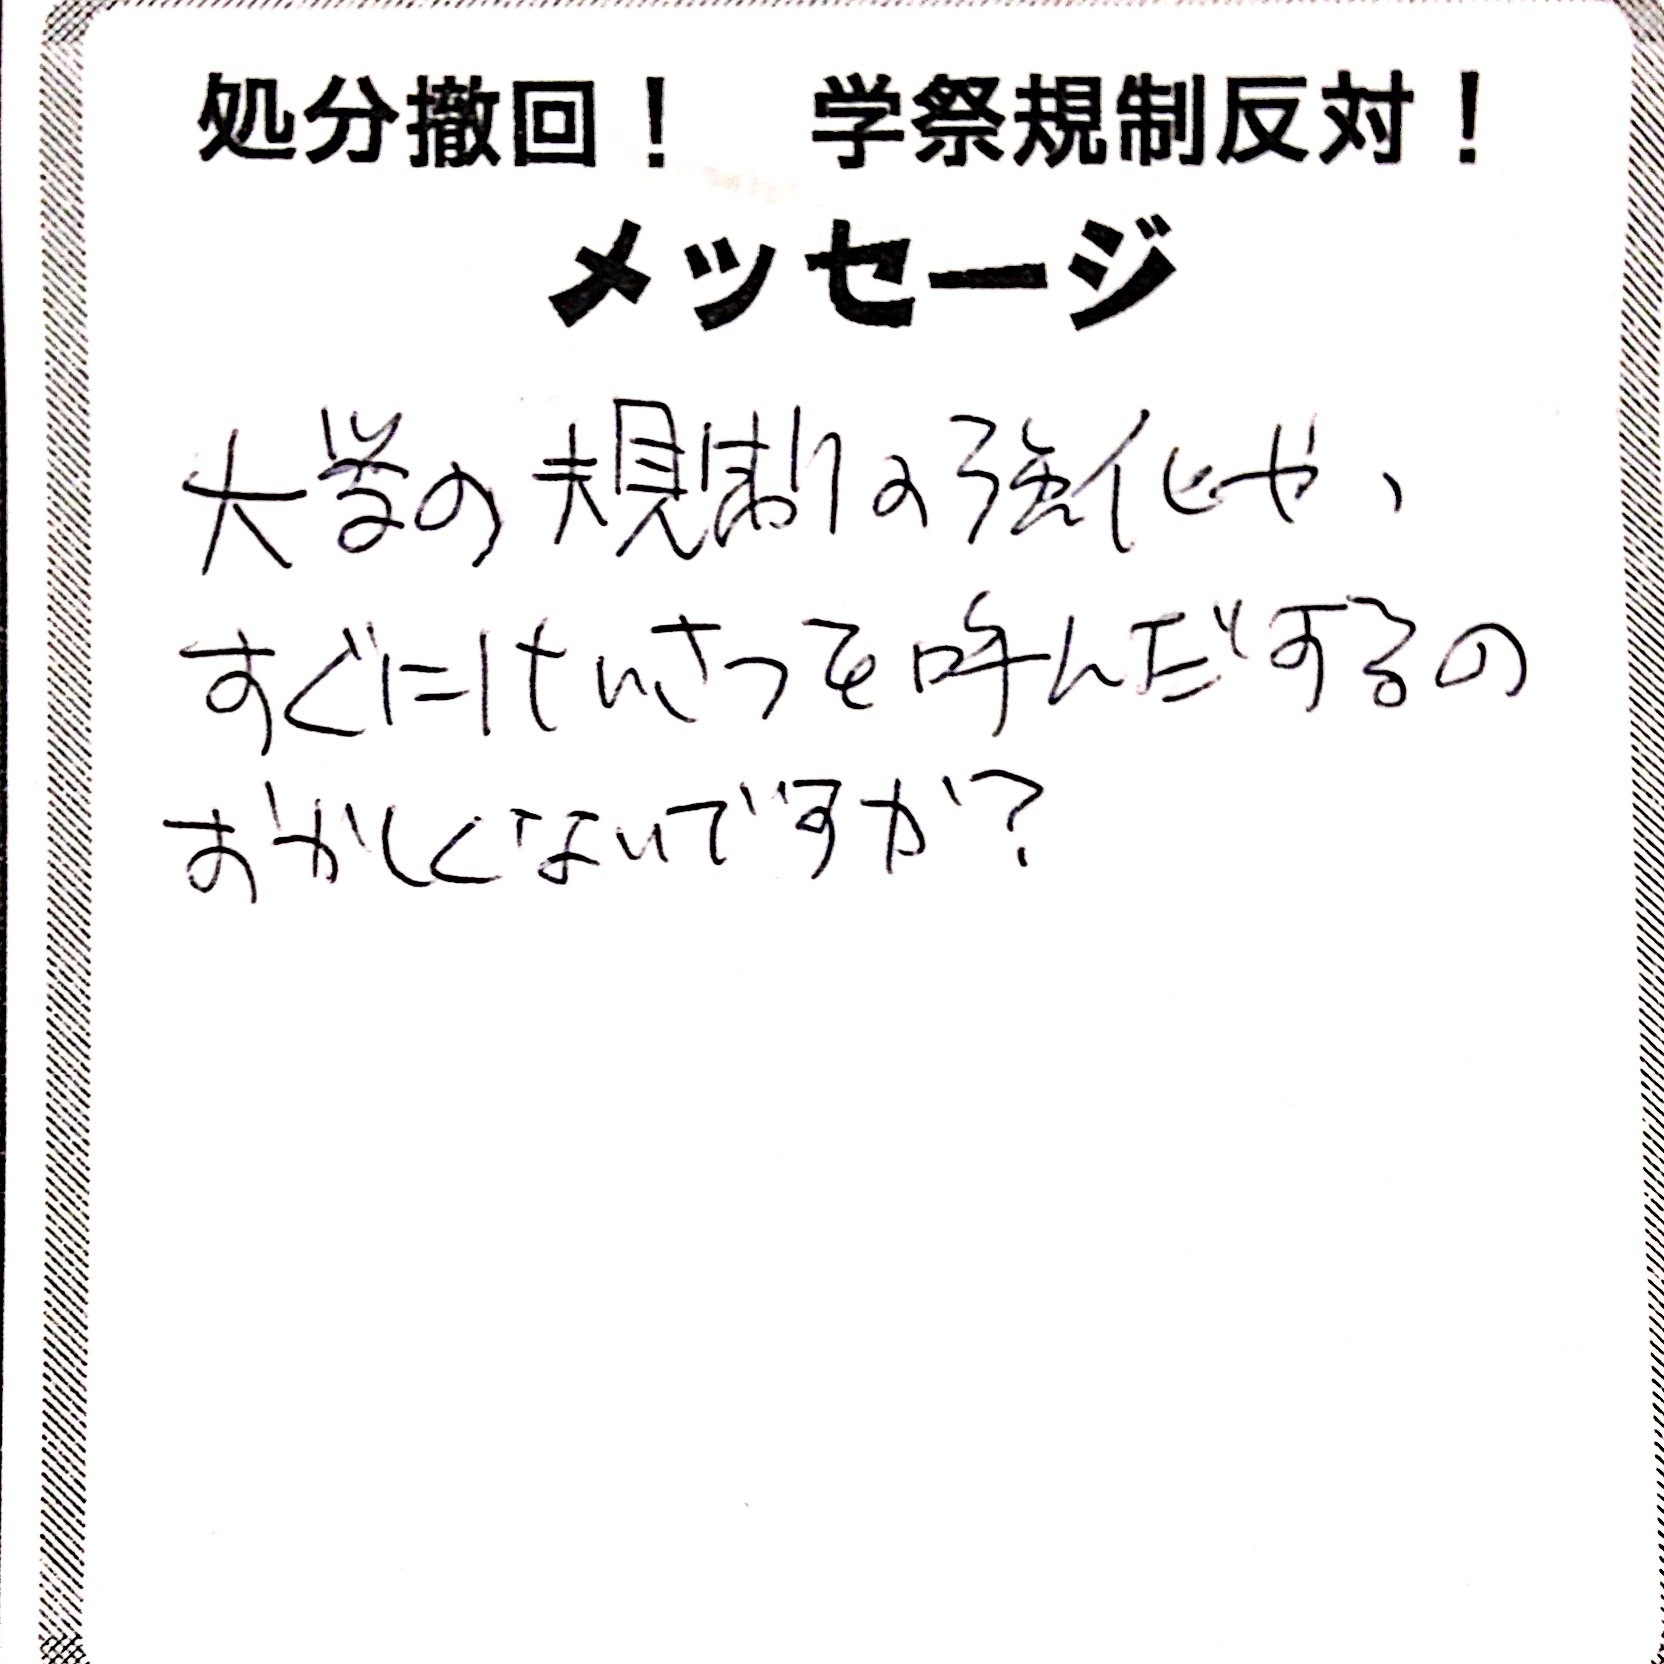 処分撤回！ 学祭規制反対！
メッセージ
大学の規制の強化や、
すぐにけいさつを呼んだりするの
おかしくないですか？